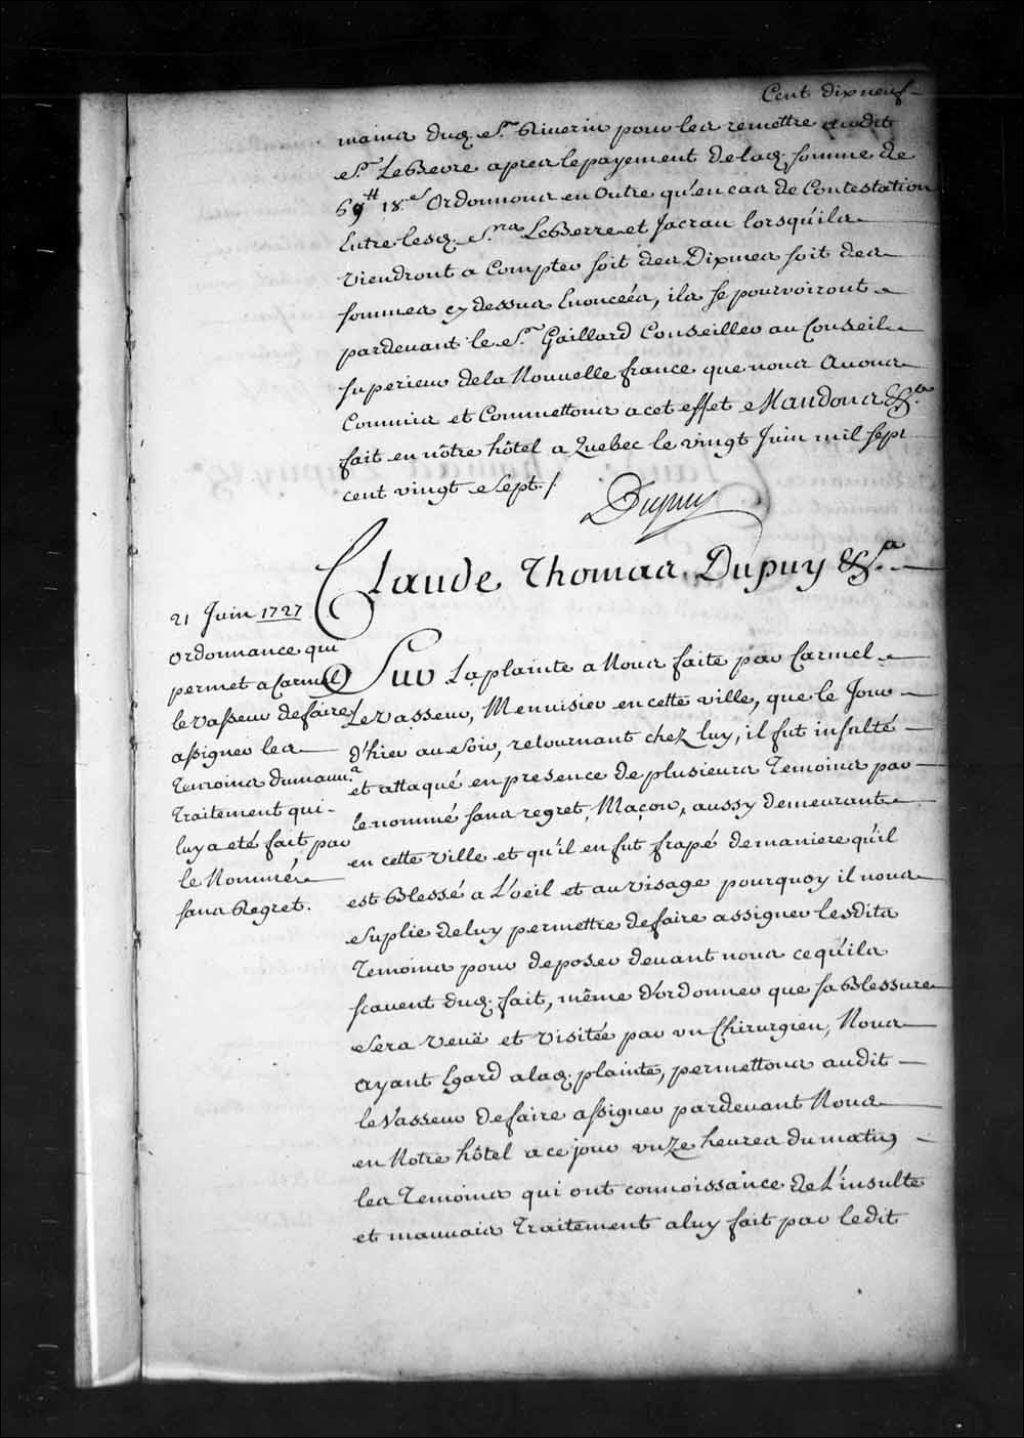 Cent dix neuf
mains dud. Sr. Riverin pour les remettre audit
Sr. LeBevre apres le payement de lad. somme de
69tt 18s Ordonnons en Outre qu'en cas de Contestation
Entre lesd. Srs LeBerre et Jacrau lorsqu'ils
viendront a Compter soit des Dixmes soit des
sommes cy dessus Enoncées, ils se pourvoiront
pardevant le Sr. Gaillard Conseiller au Conseil
superieur de la Nouvelle france que nous Avons
Commis et Commettons a cet effet Mandons &a
fait en nôtre hôtel a Quebec le vingt Juin mil sept
cent vingt sept /.
Dupuy
Claude Thomas Dupuy &a.
21 Juin 1727
Ordonnance qui
permet a Carmel
le vasseur de faire
assigner les
Temoins du mauv.
Traitement qui
luy a eté fait par
le Nommé
sans Regret.
Sur La plainte a Nous faite par Carmel
Levasseur, Menuisier en cette ville, que le Jour
d'hier au soir, retournant chez luy, il fut insulté
et attaqué en presence de plusieurs Temoins par
le nommé sans regret, Maçon, aussy demeurant
en cette ville et qu'il en fut frapé de maniere qu'il
est Blessé a L'oeil et au visage pourquoy il nous
Suplie de luy permettre de faire assigner lesdits
Temoins pour deposer devant nous ce qu'ils
scavent dud. fait, même d'ordonner que sa Blessure
Sera veuë et visitée par un Chirurgien, Nous
Ayant Egard a lad. plainte, permettons audit
leVasseur de faire assigner pardevant Nous
en Notre hôtel a ce jour unze heures du matin
les Temoins qui ont connoissance de L'insulte
et mauvais Traitement a luy fait par ledit